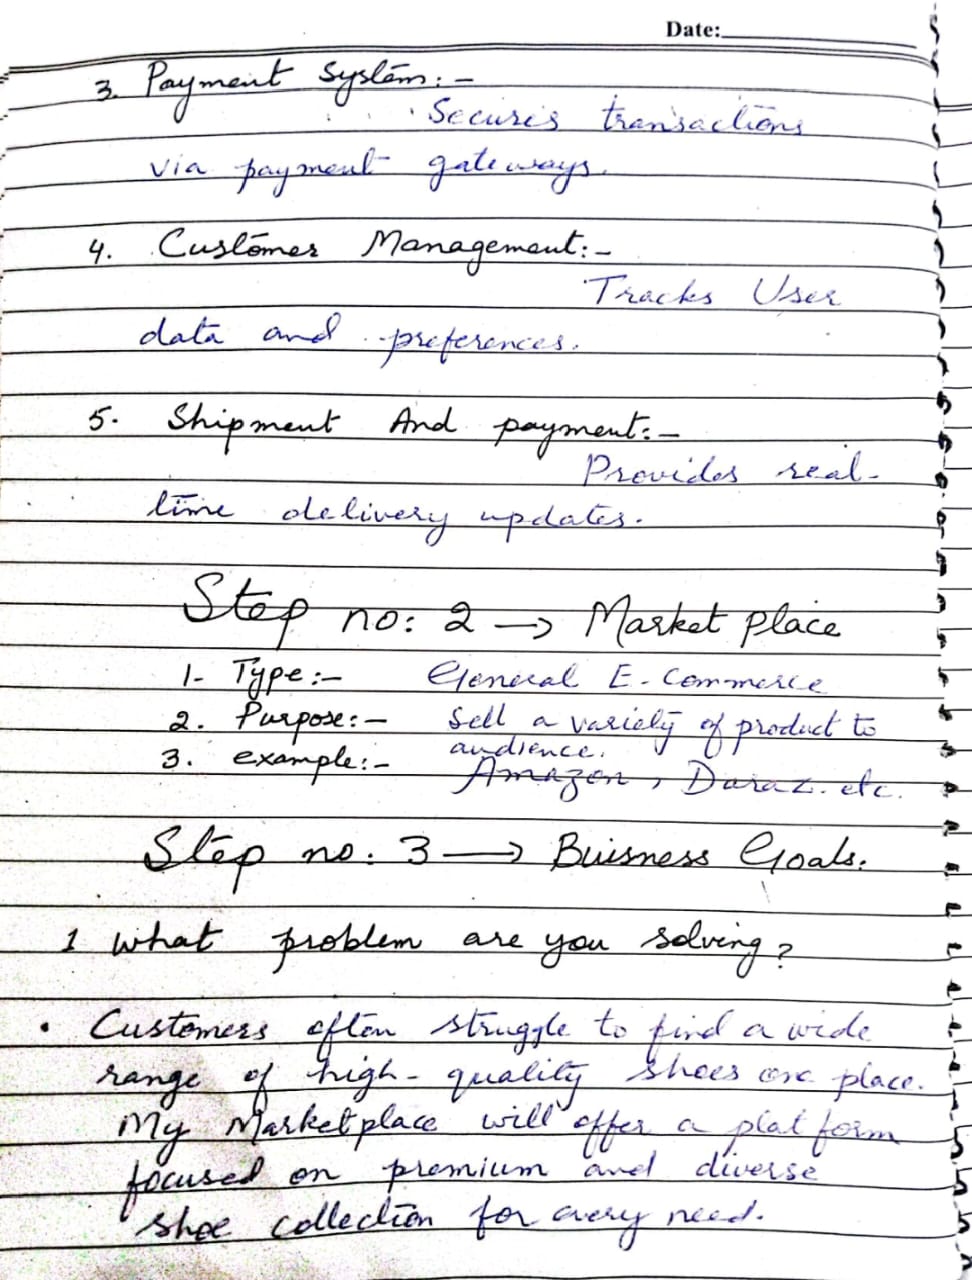 Date:
3. Payment System:-
Secures transactions
via payment gateways.
4. Customer Management:-
Tracks User
data and preferences.
5. Shipment And payment:-
Provides real-
time delivery updates.
Step no: 2 → Market place
1- Type:- General E-Commerce
2. Purpose:- Sell a variety of product to
audience.
3. example:- Amazon, Daraz. etc.
Step no: 3 → Buisness Goals.
1 What problem are you solving?
• Customers often struggle to find a wide
range of high-quality shoes one place.
My Marketplace will offer a platform
focused on premium and diverse
shoe collection for every need.